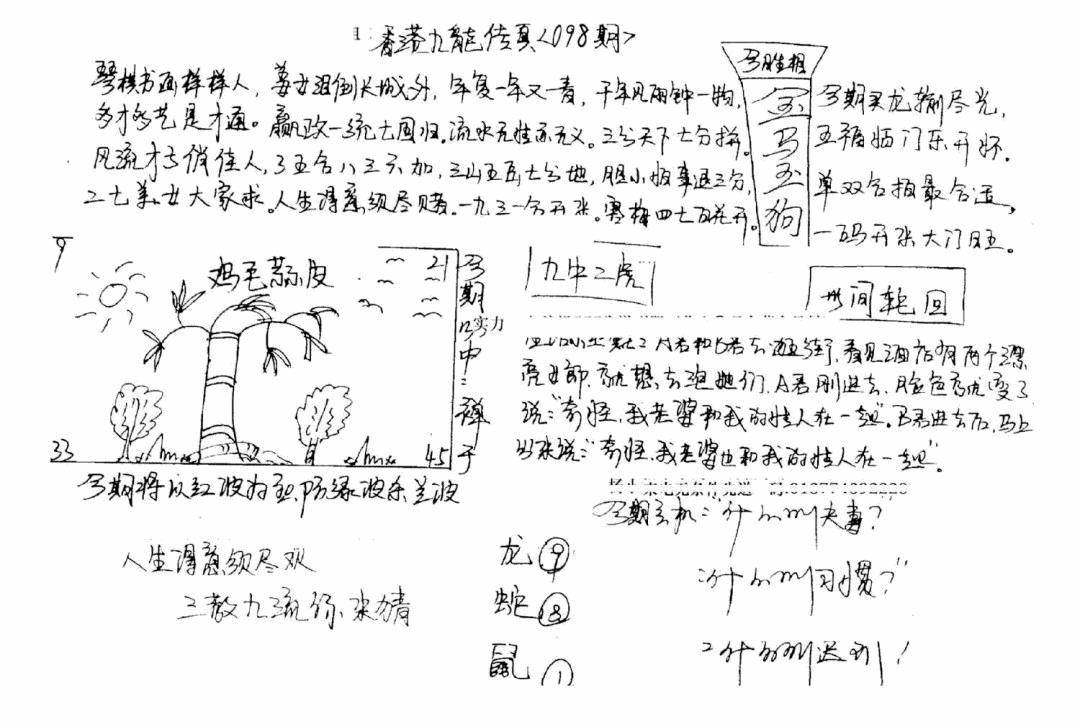 香港九龙传真<098期>
琴棋书画样样人，姜女泪倒长城外，年复一年又一青，千年风雨钟一物，
多才多艺是才通。赢政一统七国归。流水无性亦无义。三分天下七分拼。
风流才子俏佳人，三五合八三六加，三山五岳七分地，胆小怕事退三分，
二七美女大家求。人生得意须尽赌。一九三一合开张。寒梅四七百花开。
今期生相
金马玉狗
今期买龙输尽光，
五福临门乐开怀。
单双合拍最合适，
一码开张大门旺。
9
21
33
45
鸡毛蒜皮
今期
实力
中：
禅子
九牛二虎
世间轮回
A君和B君去逛街，看见酒店有两个漂
亮女郎，就想去泡她们，A君刚进去，脸色就变了
说："奇怪，我老婆和我的情人在一起"。B君进去后，马上
出来说："奇怪，我老婆也和我的情人在一起"。
今期将以红波为主，防绿波杀兰波
今期玄机："什么叫夫妻？
"什么叫习惯？"
什么叫迟到！
人生得意须尽欢
三教九流
龙 9
蛇 8
鼠 1